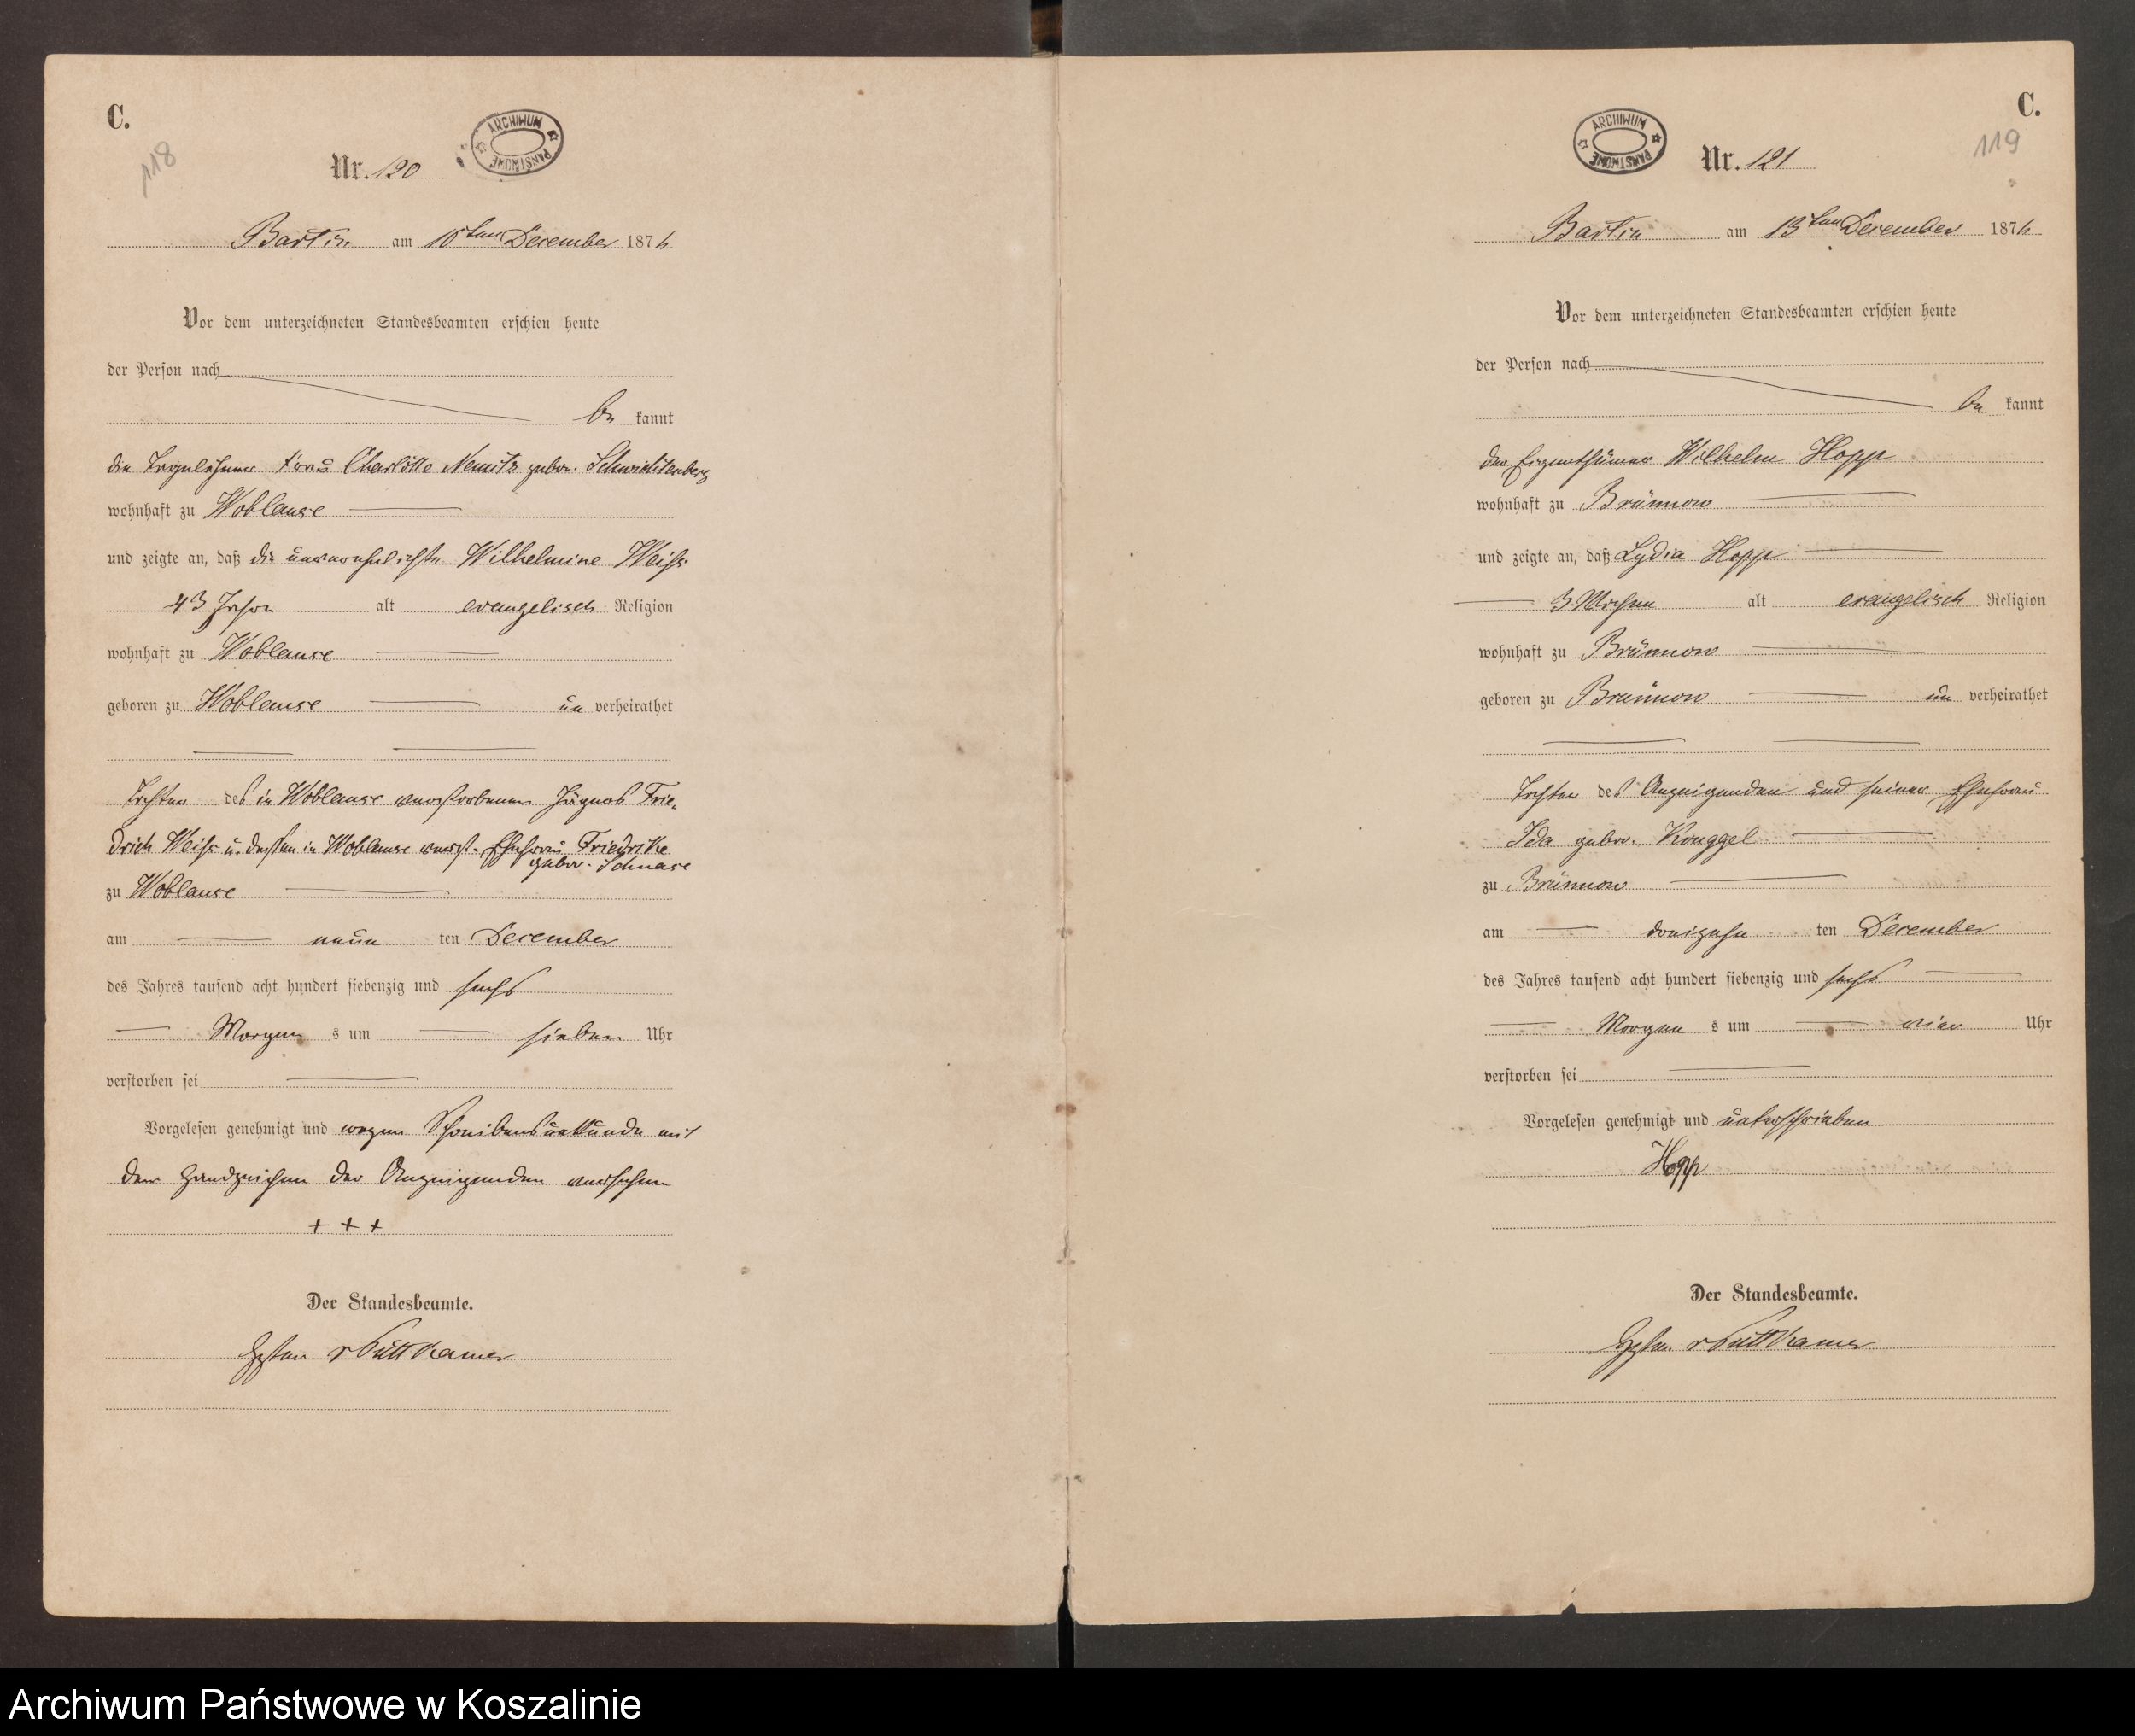 C.
118
ARCHIWUM PAŃSTWOWE
Nr. 120
Bartin am 10ten December 1876
Vor dem unterzeichneten Standesbeamten erschien heute
der Person nach
be kannt
die Tagelöhner Frau Charlotte Nemitz gebor. Schwichtenberg
wohnhaft zu Woblanse
und zeigte an, daß die unverehelichte Wilhelmine Weiss
43 Jahre alt evangelisch Religion
wohnhaft zu Woblanse
geboren zu Woblanse un verheirathet
Tochter des in Woblanse verstorbenen Jägers Frie-
drich Weiss u. dessen in Woblanse verst. Ehefrau Friedrike
gebor. Schnase
zu Woblanse
am neun ten December
des Jahres tausend acht hundert siebenzig und sechs
Morgen s um sieben Uhr
verstorben sei
Vorgelesen genehmigt und wegen Schreibensunkunde mit
dem Handzeichen der Anzeigenden versehen
+ + +
Der Standesbeamte.
v Puttkamer
C.
119
ARCHIWUM PAŃSTWOWE
Nr. 121
Bartin am 13ten December 1876
Vor dem unterzeichneten Standesbeamten erschien heute
der Person nach
be kannt
der Eigenthümer Wilhelm Hopp
wohnhaft zu Brünnow
und zeigte an, daß Lydia Hopp
3 Wochen alt evangelisch Religion
wohnhaft zu Brünnow
geboren zu Brünnow un verheirathet
Tochter des Anzeigenden und seiner Ehefrau
Ida gebor. Kruggel
zu Brünnow
am dreizehn ten December
des Jahres tausend acht hundert siebenzig und sechs
Morgen s um vier Uhr
verstorben sei
Vorgelesen genehmigt und unterschrieben
Hopp
Der Standesbeamte.
v Puttkamer
Archiwum Państwowe w Koszalinie